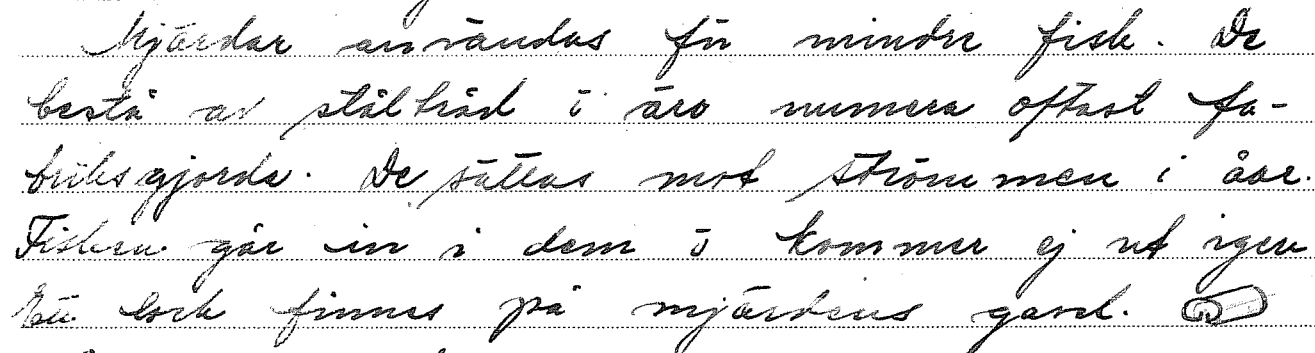 Mjärdar användas för mindre fisk. De
bestå av ståltråd o äro numera oftast fa-
briksgjorda. De sättas mot strömmen i åar.
Fisken går in i dem o kommer ej ut igen
Ett lock finnes på mjärdens gavel.